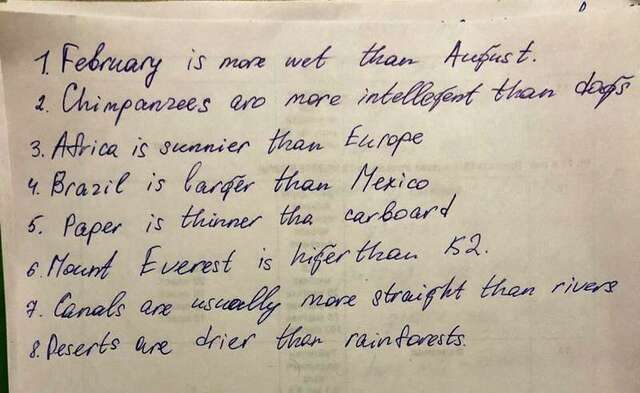 1. February is more wet than August.
2. Chimpanzees are more intellegent than dogs
3. Africa is sunnier than Europe
4. Brazil is larger than Mexico
5. Paper is thinner tha carboard
6. Mount Everest is higer than K2.
7. Canals are usually more straight than rivers
8. Deserts are drier than rainforests.